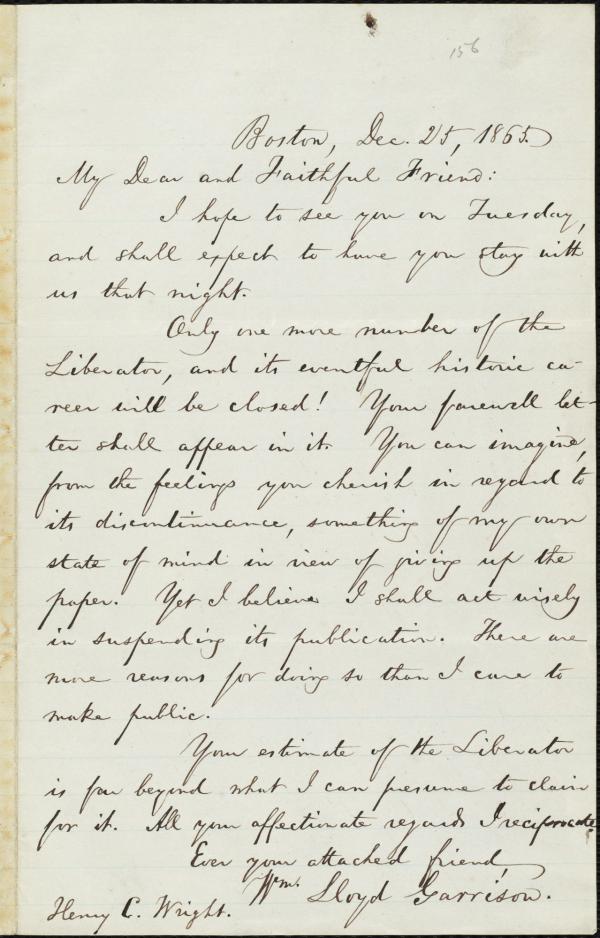 156
Boston, Dec. 25, 1865.
My Dear and Faithful Friend:
I hope to see you on Tuesday,
and shall expect to have you stay with
us that night.
Only one more number of the
Liberator, and its eventful historic ca-
reer will be closed! Your farewell let-
ter shall appear in it. You can imagine,
from the feelings you cherish in regard to
its discontinuance, something of my own
state of mind in view of giving up the
paper. Yet I believe I shall act wisely
in suspending its publication. There are
more reasons for doing so than I care to
make public.
Your estimate of the Liberator
is far beyond what I can presume to claim
for it. All your affectionate regards I reciprocate.
Ever your attached friend,
Wm. Lloyd Garrison.
Henry C. Wright.